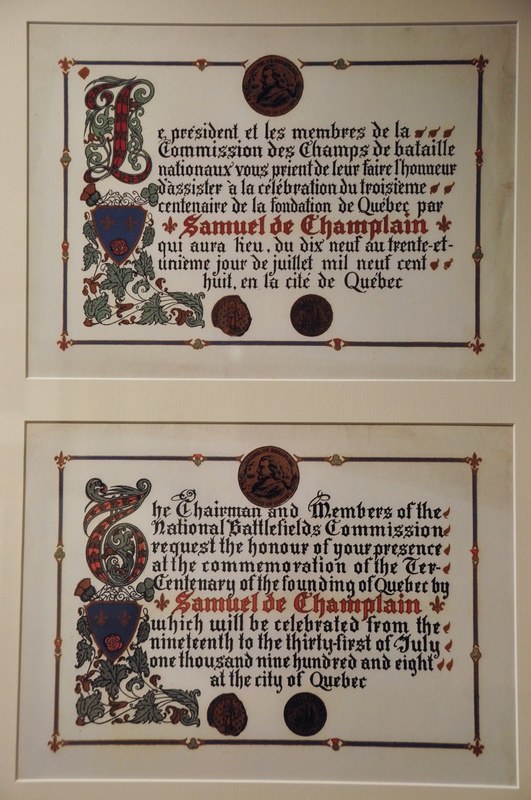 Le président et les membres de la
Commission des Champs de bataille
nationaux vous prient de leur faire l'honneur
d'assister à la célébration du troisième
centenaire de la fondation de Québec par
Samuel de Champlain
qui aura lieu, du dix neuf au trente-et-
unième jour de juillet mil neuf cent
huit, en la cité de Québec
The Chairman and Members of the
National Battlefields Commission
request the honour of your presence
at the commemoration of the Ter-
Centenary of the founding of Quebec by
Samuel de Champlain
which will be celebrated from the
nineteenth to the thirty-first of July
one thousand nine hundred and eight
at the city of Quebec